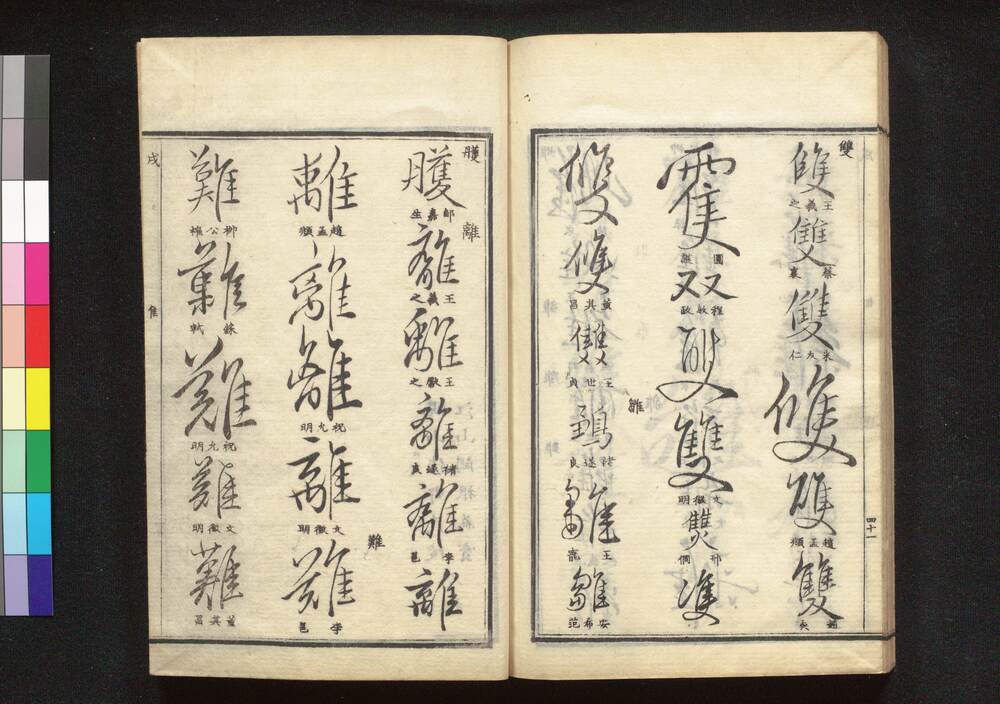 雙
雙
王羲之
雙
蔡襄
雙
米友仁
雙
雙
趙孟頫
雙
四十一
雙
雙
程敏政
雙
雙
文徵明
雙
邢侗
雙
雙
雙
董其昌
雙
王世貞
雛
鵶
褚遂良
雛
王寵
雛
安希范
雘
雘
郗嘉生
離
離
王羲之
離
王獻之
離
褚遂良
離
李邕
離
離
趙孟頫
離
離
祝允明
離
文徵明
難
難
李邕
難
柳公權
難
蘇軾
難
祝允明
難
文徵明
難
董其昌
戌
隹